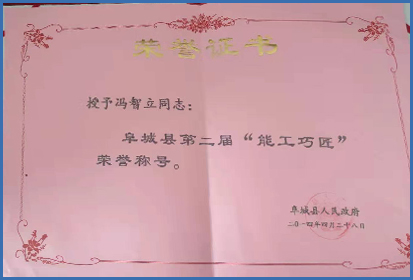 荣誉证书
授予冯智立同志：
阜城县第二届“能工巧匠”
荣誉称号。
阜城县人民政府
二〇一四年四月二十八日